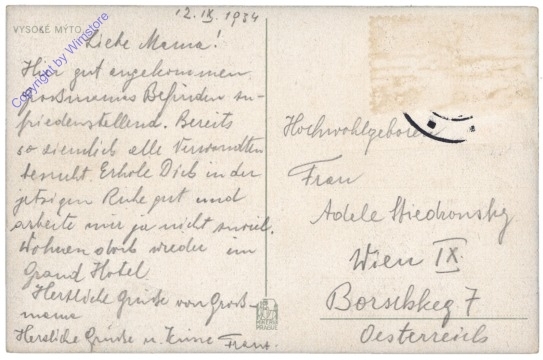 12.IX.1934
VYSOKÉ MÝTO
Copyright by Wimstore
Liebe Mama!
Hier gut angekommen.
Grossmamas Befinden zu-
friedenstellend. Bereits
so ziemlich alle Verwandten
besucht. Erhole Dich in der
jetzigen Ruhe gut und
arbeite mir ja nicht zuviel.
Wohnen dort wieder im
Grand Hotel
Herzliche Grüsse von Gross-
mama
Herzliche Grüsse u. Küsse Franz.
Hochwohlgeboren
Frau
Adele
Wien IX.
7
Oesterreich